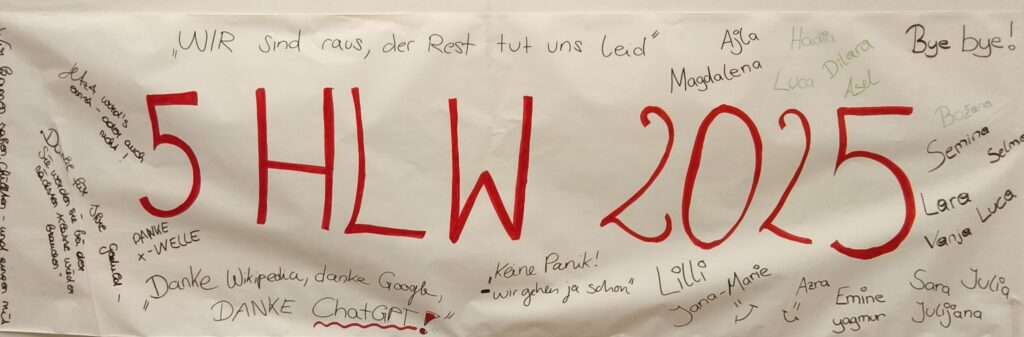 „WIR sind raus, der Rest tut uns leid“
Ajla
Magdalena
Luca
Dilara
Asel
Bye bye!
5 HLW 2025
Semina
Selma
Lara
Luca
Vanja
Jetzt wird's
ernst - oder auch
nicht!
Danke für Ihre Geduld -
Sie werden sie bei der
nächsten Klasse wieder
brauchen!
DANKE
X-WELLE
„Danke Wikipedia, danke Google,
DANKE ChatGPT!“
„Keine Panik!
- wir gehen ja schon“
Lilli
Jana-Marie
Azra
Emine
yagmur
Sara Julia
Julijana